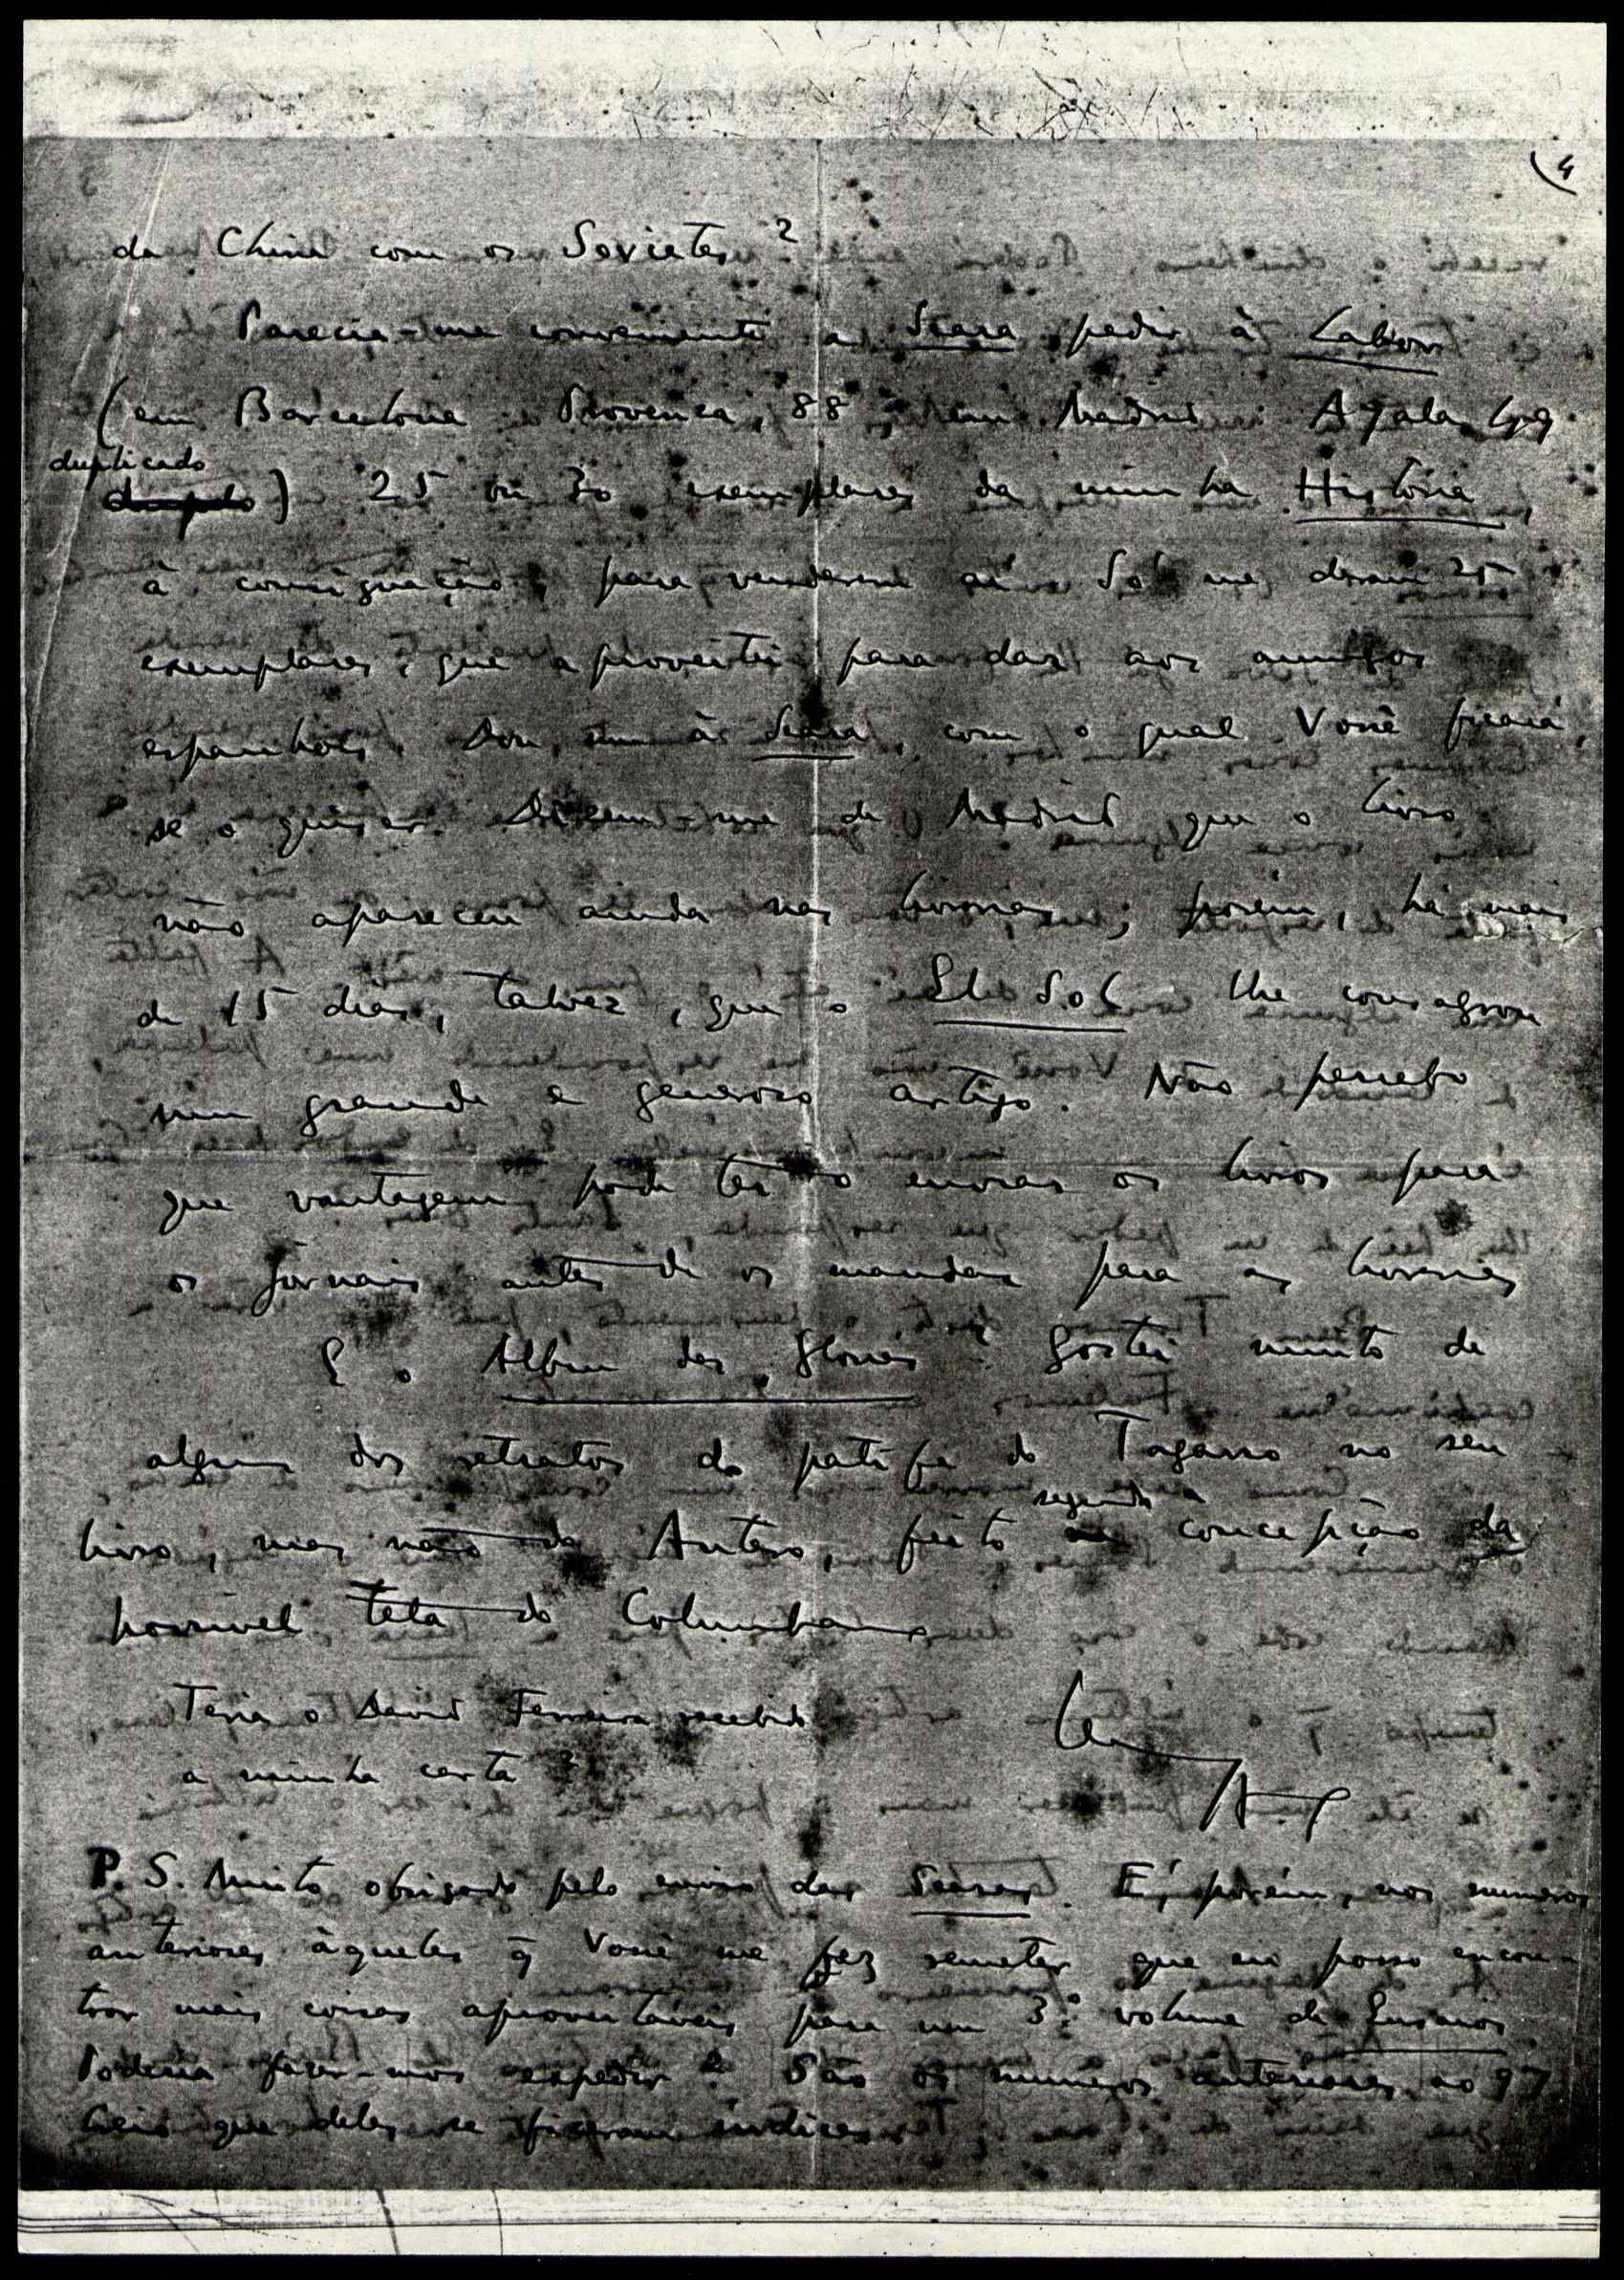 (4
da China com os Sovietes?
Parecia-me conveniente a Seara pedir à Labor
(em Barcelona: Provenza, 88; em Madrid: Ayala, 49
duplicado
) 25 ou 30 exemplares da minha História,
à consignação, para venderem aí. Só me deram 25
exemplares, que aproveitei para dar aos amigos
espanhóis. Dou um à Seara, com o qual Você ficará,
se o quiser. Dizem-me de Madrid que o livro
não apareceu ainda nas livrarias; porém, há mais
de 15 dias, talvez, que o El Sol lhe consagrou
um grande e generoso artigo. Não percebo
que vantagem pode ter o enviar os livros para
os jornais antes de os mandar para as livrarias
E o Albúm das Glórias? Gostei muito de
alguns dos retratos do patife do Tagarro no seu
livro; mas não do Antero, feito segundo concepção da
horrível tela do Columbano
Teria o David Ferreira recebido
a minha carta?
P. S. Muito obrigado pelo envio das Searas. É, porém, nos numeros
anteriores àqueles q Você me fez remeter que eu posso encon-
trar mais coisas aproveitáveis para um 3.º volume de Ensaios.
Poderia fazer-mos expedir? São os numeros anteriores ao 97
Creio que deles se fizeram índices.